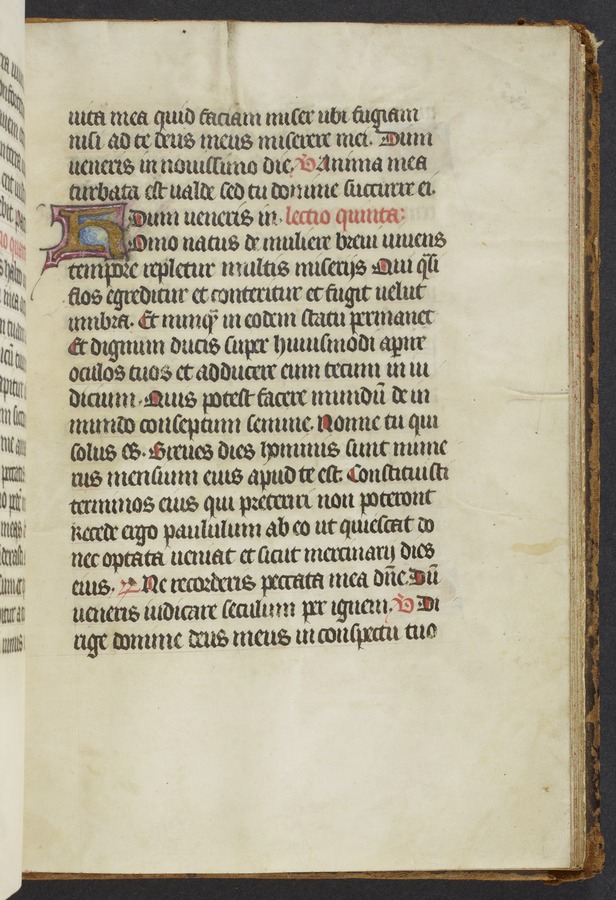 uita mea quid faciam miser ubi fugiam
nisi ad te deus meus miserere mei. Dum
ueneris in nouissimo die. V Anima mea
turbata est ualde sed tu domine succurre ei.
Dum ueneris in. lectio quinta:
Homo natus de muliere breui uiuens
tempore repletur multis miserijs Qui q̄si
flos egreditur et conteritur et fugit uelut
umbra. Et nunq̄ in eodem statu permanet
Et dignum ducis super huiusmodi aperire
oculos tuos et adducere eum tecum in iu
dicium. Quis potest facere mundū de in
mundo conseptum semine. Nonne tu qui
solus es. Breues dies hominis sunt nume
rus mensium eius apud te est. Constituisti
terminos eius qui preteriri non poterunt
Recede ergo paululum ab eo ut quiescat do
nec optata ueniat et sicut mercinarij dies
eius. R Ne recorderis peccata mea dn̄e. Dū
ueneris iudicare seculum per ignem. V Di
rige domine deus meus in conspectu tuo